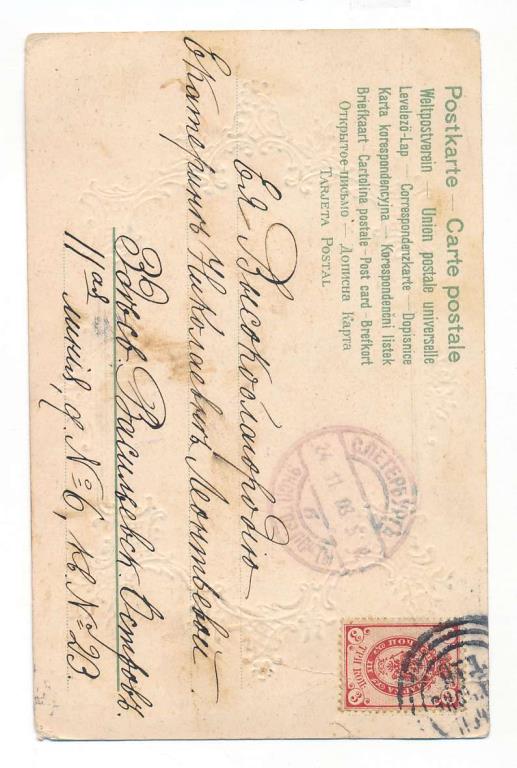 Postkarte — Carte postale
Weltpostverein — Union postale universelle
Levelező-Lap — Correspondenzkarte — Dopisnice
Karta korespondencyjna — Korespondenční listek
Briefkaart — Cartolina postale — Post card — Brefkort
Открытое письмо — Дописна Карта
Tarjeta Postal
С.ПЕТЕРБУРГЪ
24 11 03
ТРИ КОП
3 3
Ея Высокоблагородію
Екатеринѣ Николаевнѣ Леонтьевой.
Здѣсь. Васильевск. Островъ.
11ая линія, д. №6, кв. №23.